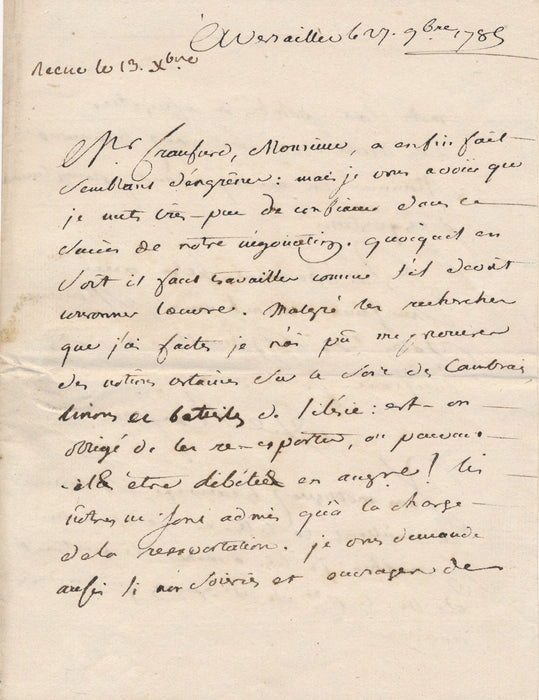 A Versailles le 27. 9bre 1785
recue le 13. Xbre
Mr Craufurd, Monsieur, a enfin fait
semblant d'engrener: mais je vous avoue que
je mets très-peu de confiance dans ce
succès de notre négociation. quoiquil en
soit il faut travailler comme s'il devoit
couronner l'œuvre. Malgré les recherches
que j'ai faites je n'ai pû me procurer
des notions certaines sur le Sort des Cambrais,
linons et batistes de Silésie: est-on
obligé de les re-exporter, ou peuvent-
elles être débitées en angre! les
nôtres ne sont admis qu'à la charge
de la reexportation. je vous demande
aussi si nos Soieries et ouvrages de